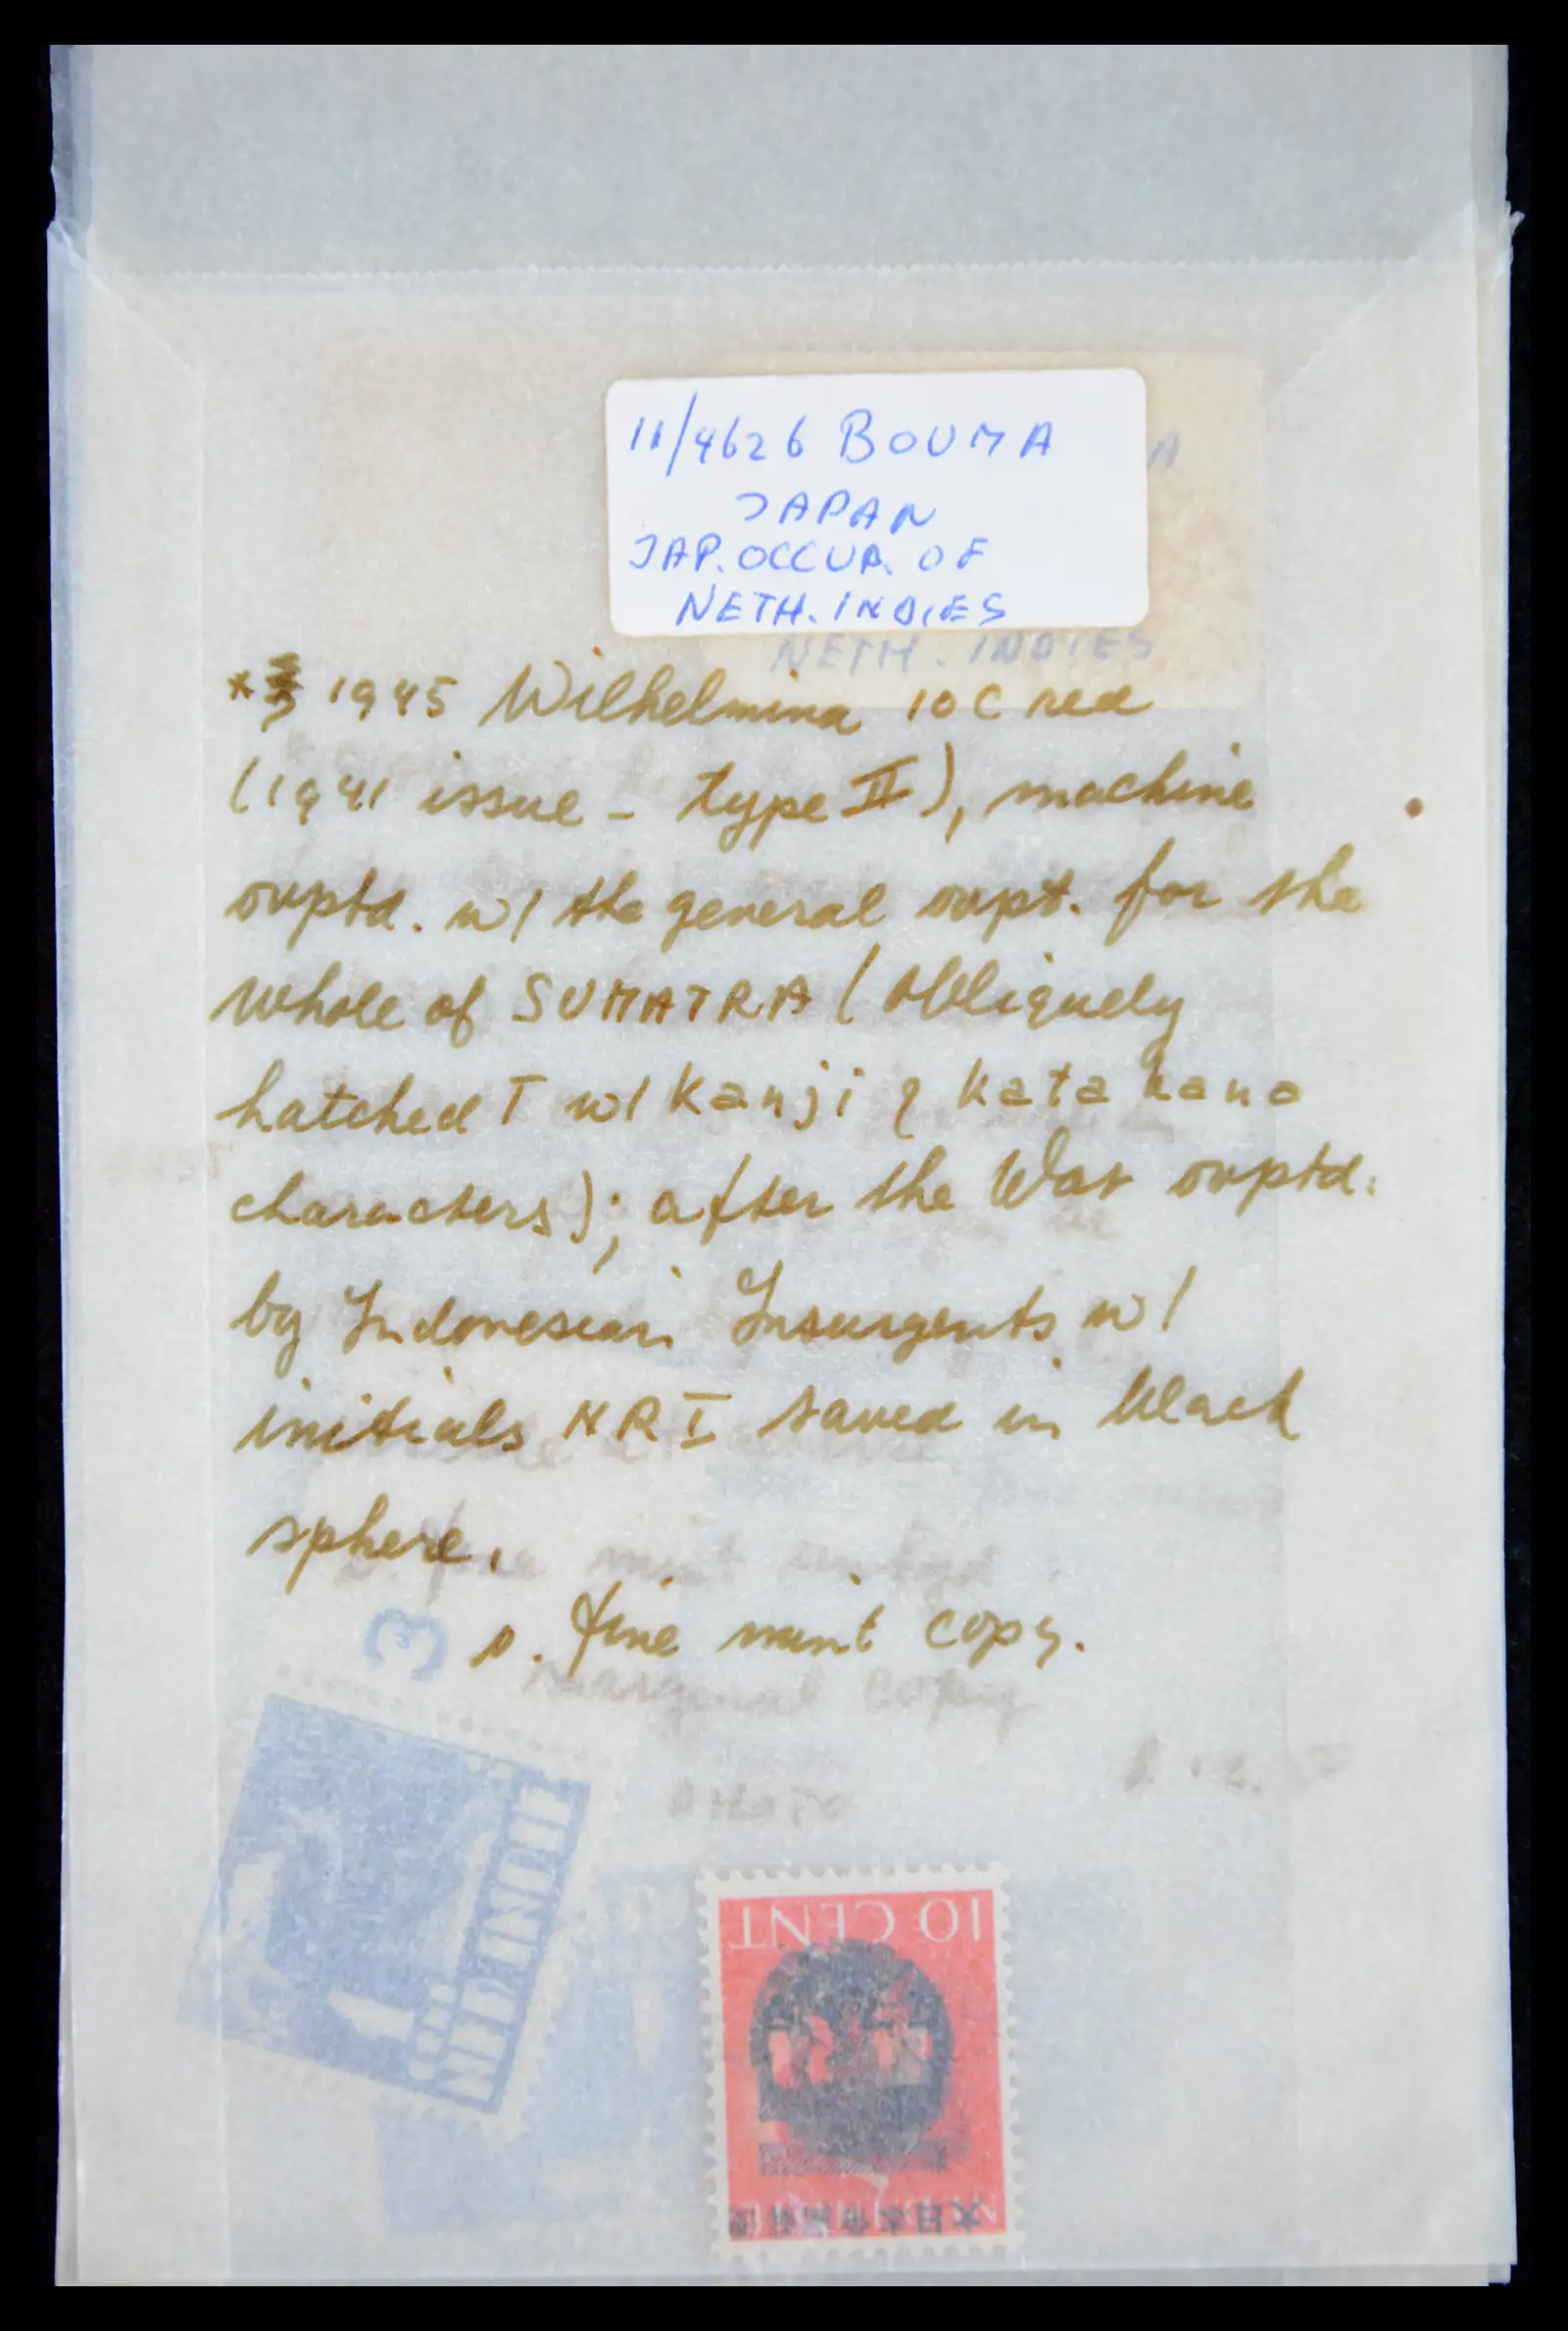 11/4626 BOUMA
JAPAN
JAP. OCCUP. OF
NETH. INDIES
A
NETH. INDIES
* 1945 Wilhelmina 10 C red
(1941 issue - type II), machine
ovptd. w/ the general ovpt. for the
whole of SUMATRA (obliquely
hatched T w/ Kanji & katakana
characters); after the War ovptd.
by Indonesian Insurgents w/
initials NRI saved in black
sphere.
fine mint copy.
marginal copy
PHOTO
3
NED. INDIE
10 CENT
大日本帝國郵便